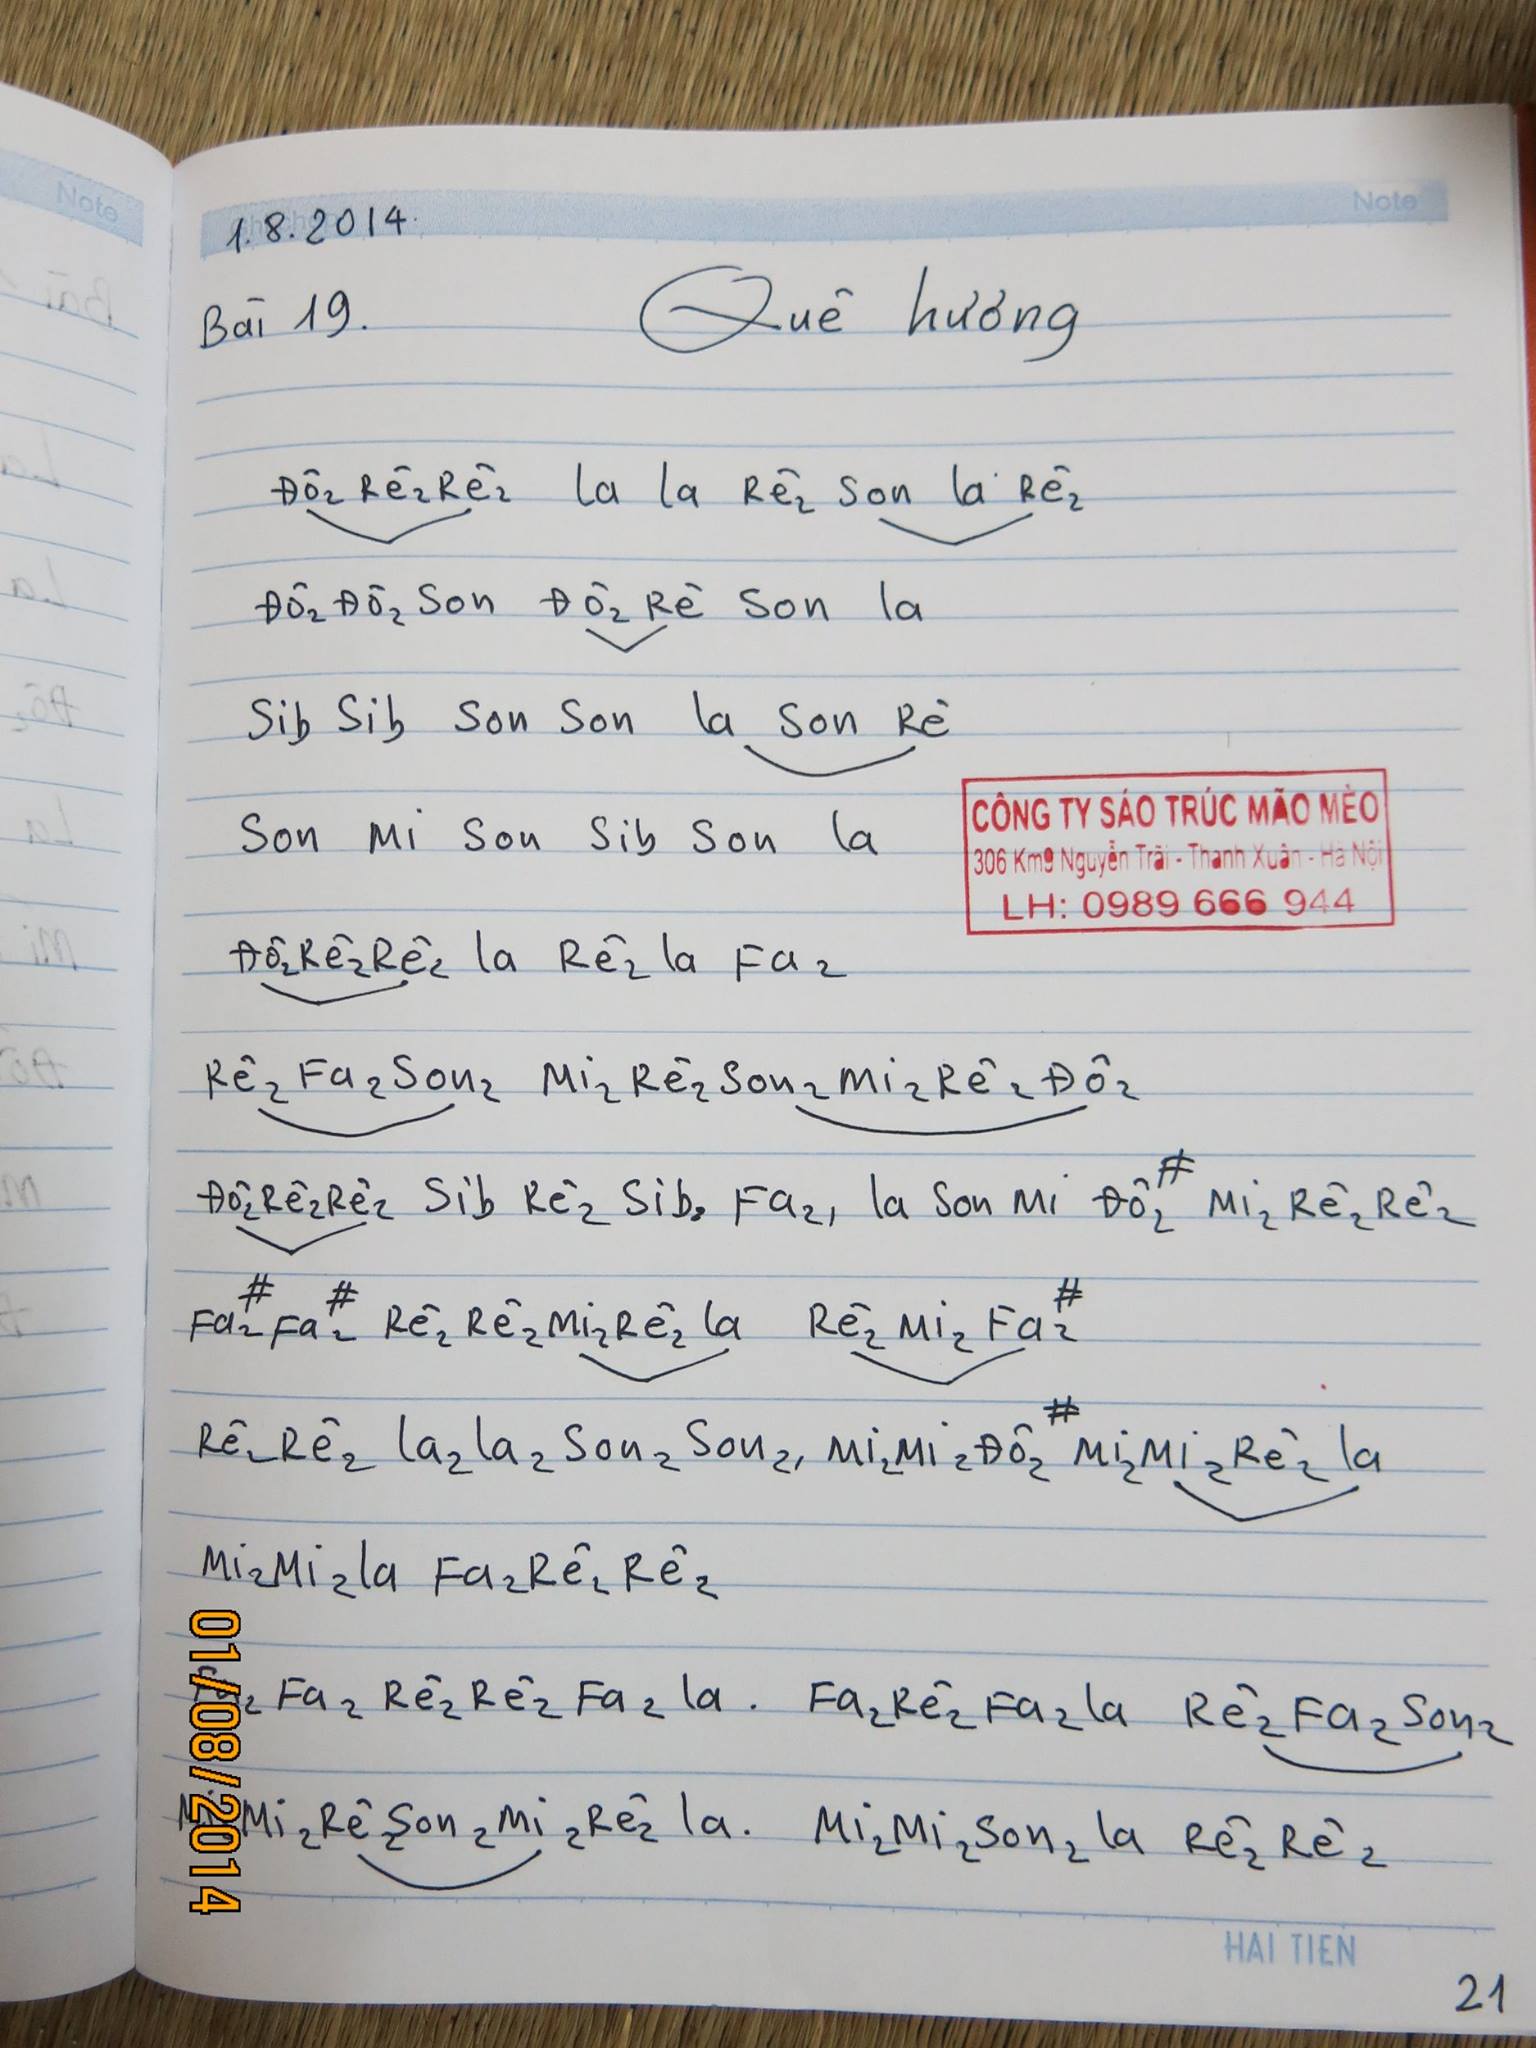 Note
Note
1.8.2014.
Bài 19. Quê hương
Đô₂ Rê₂Rê₂ la la Rê₂ Son la Rê₂
Đô₂ Đô₂ Son Đô₂ Rê Son la
Sib Sib Son Son la Son Rê
Son Mi Son Sib Son la
CÔNG TY SÁO TRÚC MÃO MÈO
306 Km9 Nguyễn Trãi - Thanh Xuân - Hà Nội
LH: 0989 666 944
Đô₂Rê₂Rê₂ la Rê₂ la Fa₂
Rê₂ Fa₂ Son₂ Mi₂ Rê₂ Son₂ Mi₂ Rê₂ Đô₂
Đô₂Rê₂Rê₂ Sib Rê₂ Sib. Fa₂, la Son Mi Đô₂# Mi₂ Rê₂ Rê₂
Fa₂# Fa₂# Rê₂ Rê₂ Mi₂ Rê₂ la Rê₂ Mi₂ Fa₂#
Rê₂ Rê₂ la₂ la₂ Son₂ Son₂, Mi₂Mi₂ Đô₂# Mi₂Mi₂ Rê₂ la
Mi₂Mi₂ la Fa₂ Rê₂ Rê₂
Fa₂ Rê₂ Rê₂ Fa₂ la. Fa₂ Rê₂ Fa₂ la Rê₂ Fa₂ Son₂
Mi₂ Rê₂ Son₂ Mi₂ Rê₂ la. Mi₂ Mi₂ Son₂ la Rê₂ Rê₂
01/08/2014
HAI TIEN
21